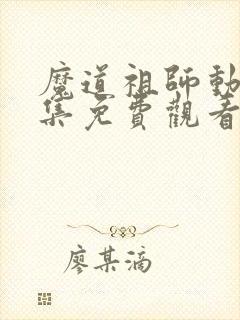 魔道祖師動
集免費觀看
廖某滴